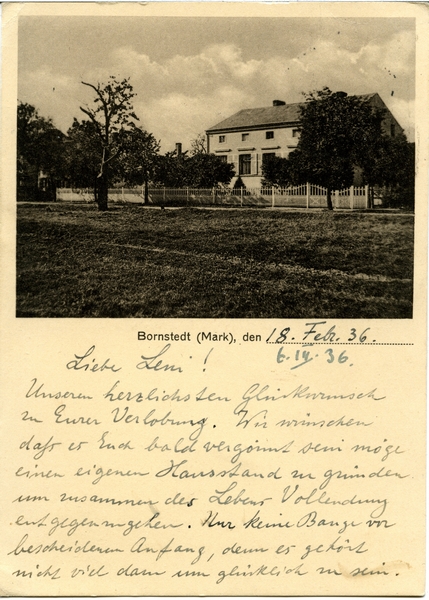 Bornstedt (Mark), den 18. Febr. 36.
6. IV. 36.
Liebe Leni!
Unseren herzlichsten Glückwunsch
zu Eurer Verlobung. Wir wünschen
daß es Euch bald vergönnt sein möge
einen eigenen Hausstand zu gründen
um zusammen des Lebens Vollendung
entgegenzugehen. Nur keine Bange vor
bescheidenen Anfang, denn es gehört
nicht viel dazu um glücklich zu sein.